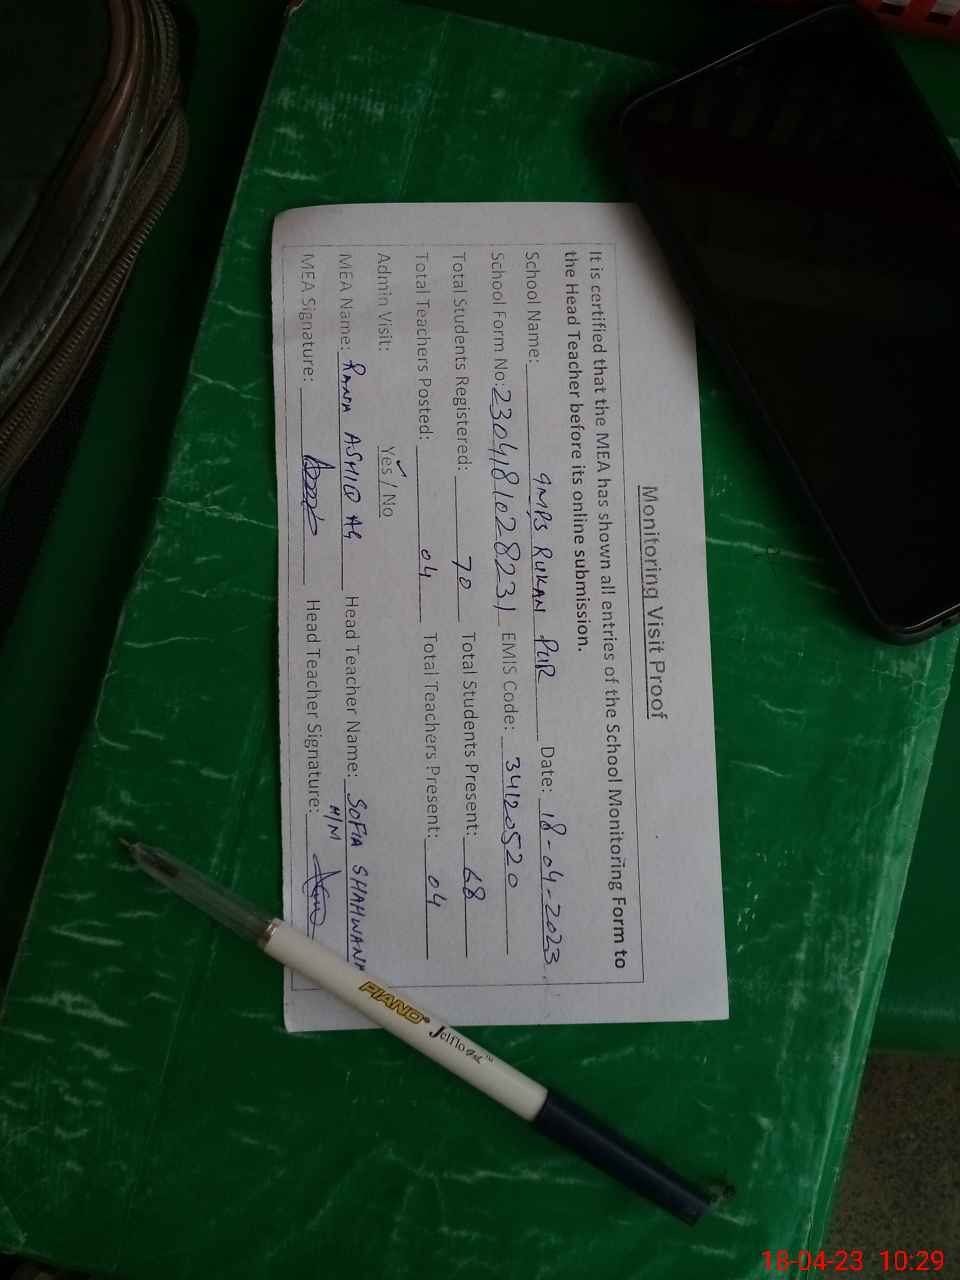 Monitoring Visit Proof
It is certified that the MEA has shown all entries of the School Monitoring Form to
the Head Teacher before its online submission.
School Name: GMPS RUKAN PUR Date: 18-04-2023
School Form No: 2304181028231 EMIS Code: 34120520
Total Students Registered: 70 Total Students Present: 68
Total Teachers Posted: 04 Total Teachers Present: 04
Admin Visit: Yes / No
MEA Name: RANA ASHIQ AG Head Teacher Name: SOFIA SHAHWANA
H/M
MEA Signature: Head Teacher Signature:
PIANO® Jelflo Gel™
18-04-23 10:29